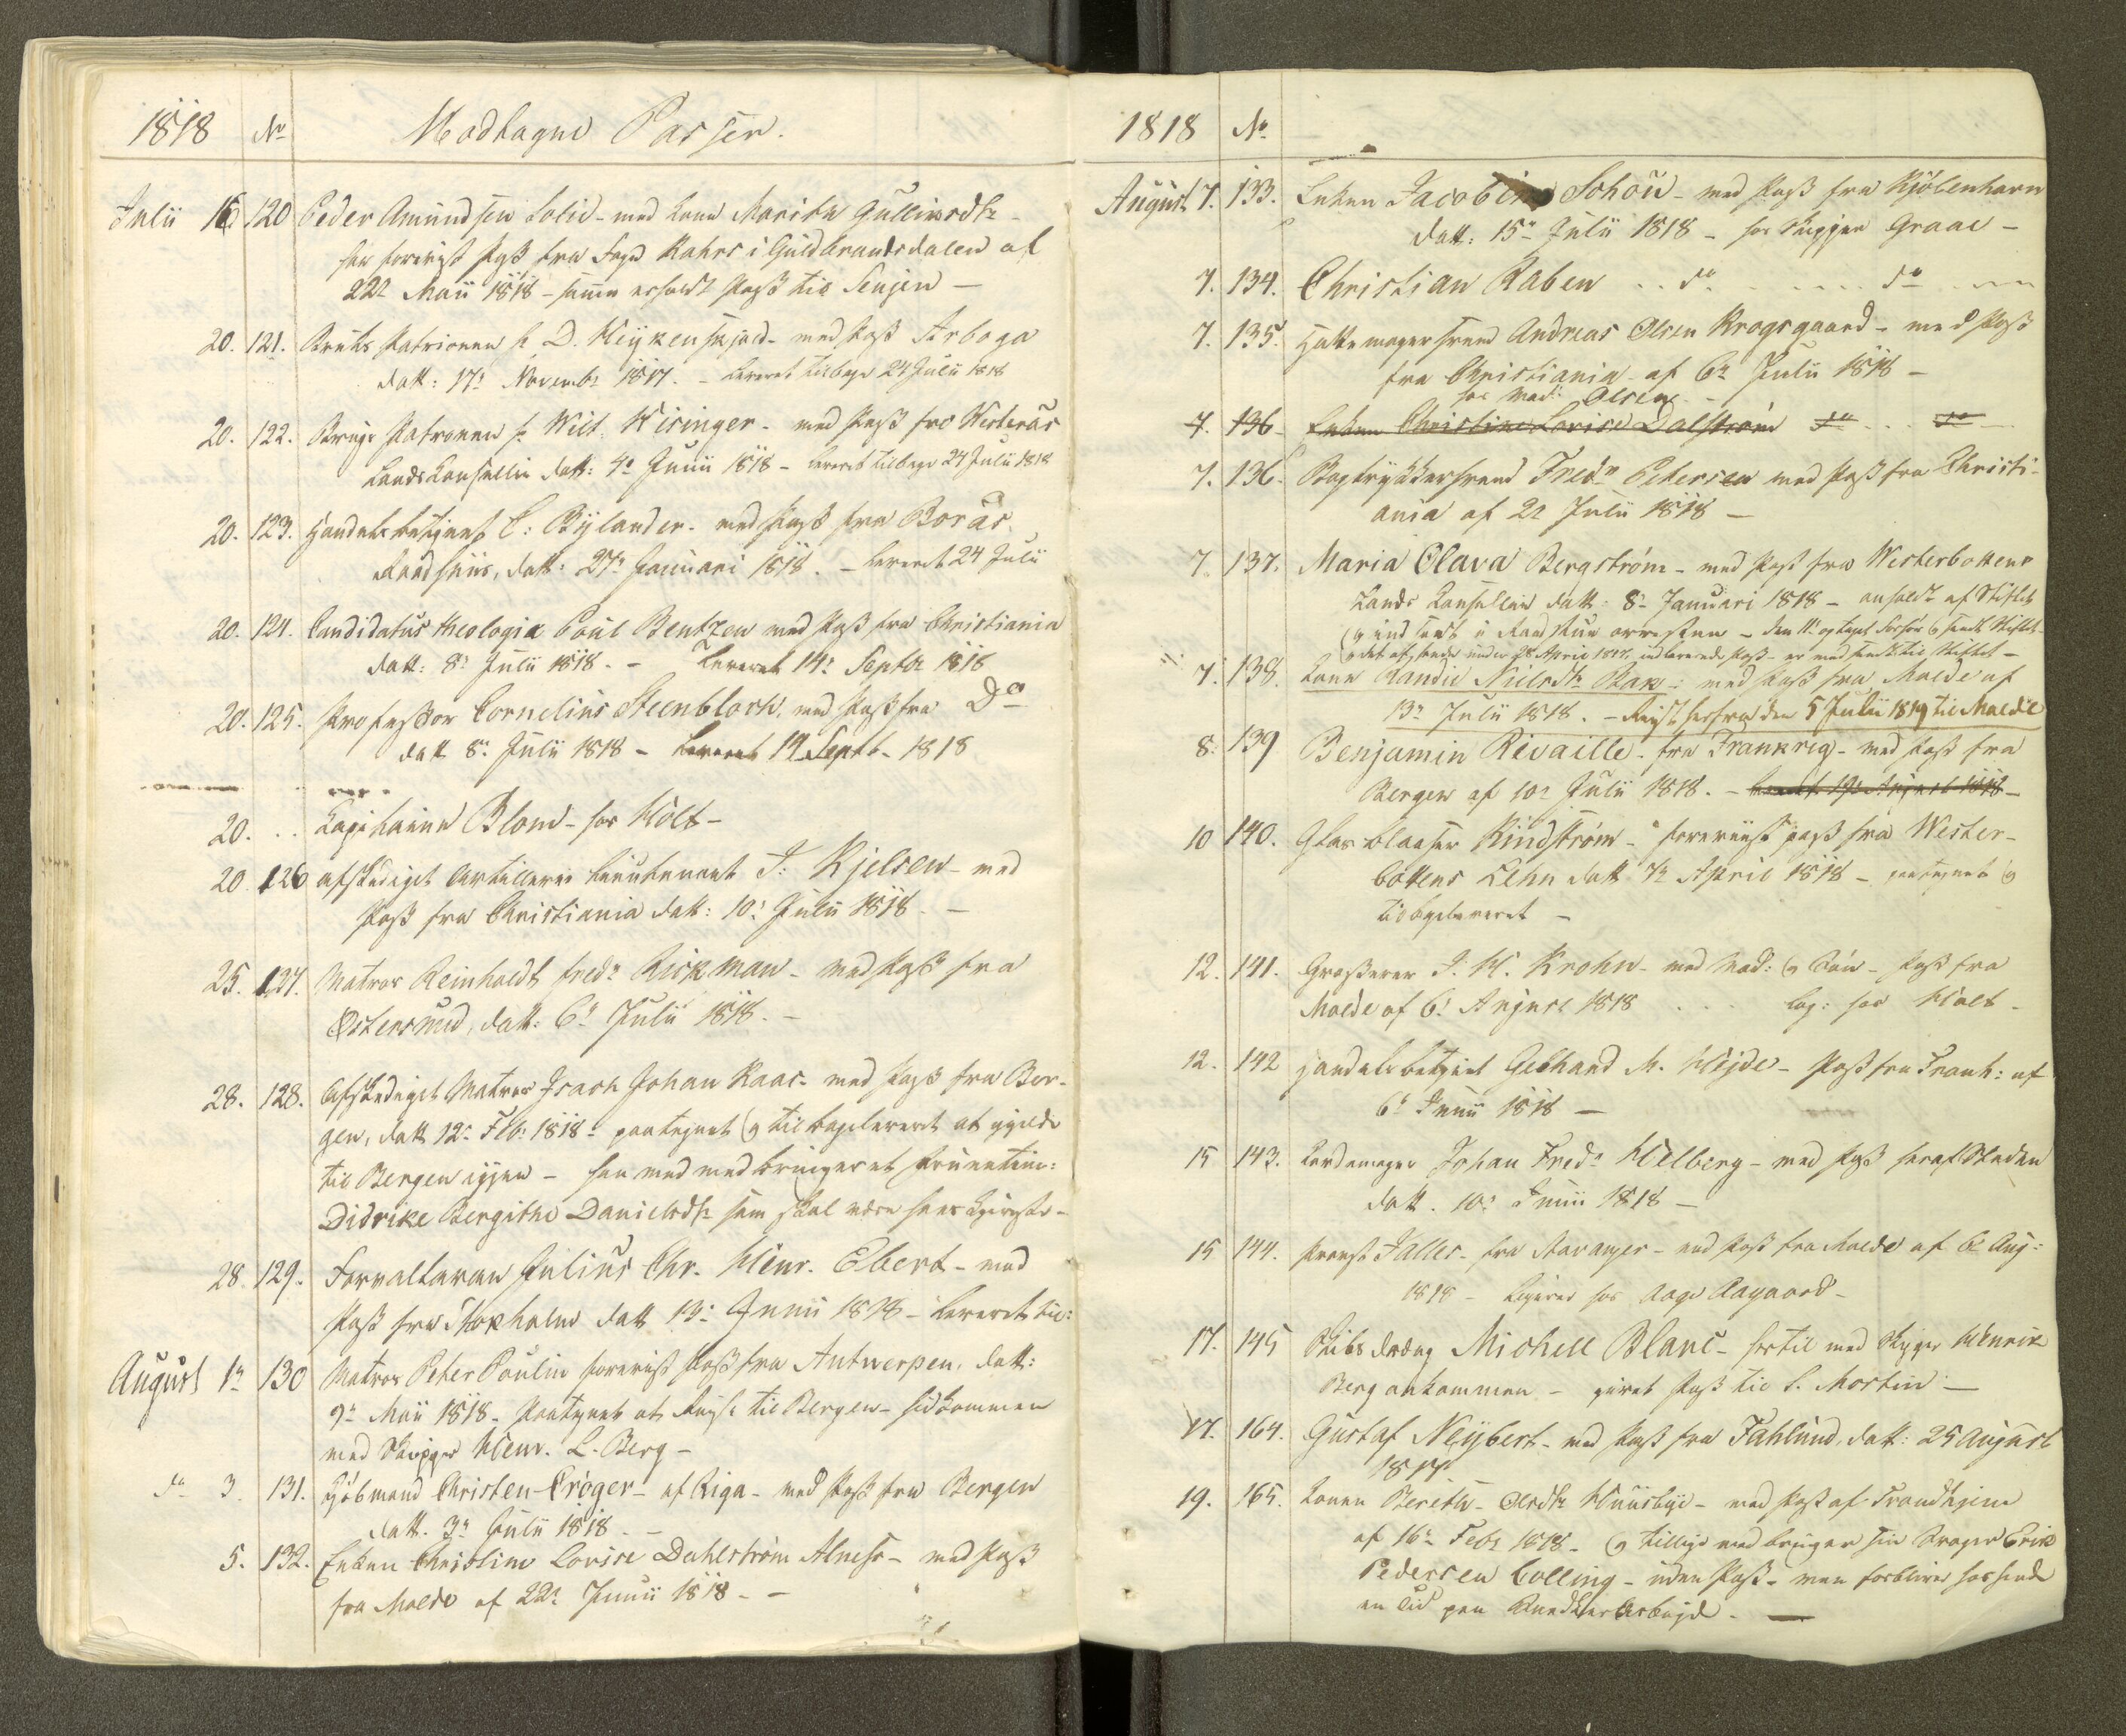 1818 No Modtagne Passer.
Julii 16 120 Peder Amundsen Solie - med Kone Marithe Gulliversdtr -
har foreviist Pass fra Foged Rahrs i Guldbrandsdalen af
22de Maii 1818 - samme erholdt Pass til Senjen -
20. 121. Bruks Patronen hr D. Heykenskjold - med Pass Arboga
datt: 17de Novembr 1817. - Leveret tilbage 24 Julii 1818
20. 122. Brugs Patronen hr Wilt. Wisinger - med Pass fra Westerås
Lands Canselliie datt: 4de Junii 1818 - Leveret tilbage 24 Julii 1818
20. 123. Handels betjent C: Bÿlander - med Pass fra Borås
Raadhuus, datt: 27de Januari 1818. - Leveret 24 Julii
20. 124. Candidatus theologia Poul Bentzen med Pass fra Christiania
datt: 8de Julii 1818. - Leveret 14de Septbr 1818
20. 125. Professor Cornelius Steenblock, med Pass fra Do
datt 8de Julii 1818 - Leveret 14 Septb. 1818
20. .. Capitainn Blom - hos Holt -
20 126 afskediget Artillerie Lieutenant J: Kjelsen - med
Pass fra Christiania datt: 10de Julii 1818. -
25. 127. Matros Reinholdt Fredr Rickman - med Pass fra
Østersund, datt: 6te Julii 1818. -
28. 128. Afskediget Matros Isach Johan Kaas - med Pass fra Ber-
gen, datt 12te Feb: 1818 - paategnet og tilbageleveret at gjelde
til Bergen igjen - han med medbringer et Fruentim:
Didrike Bergithe Danielsdtr som skal være hans Kjereste -
28. 129. Forvalteren Julius Chr. Henr. Ebert - med
Pass fra Stokholm datt 13de Junii 1818 - Leveret til:
August 1te 130 Matros Peter Poulin foreviist Pass fra Antwerpen, datt:
9de Maii 1818 - Paategnet at Reyse til Bergen - hidkommen
med Skipper Henr. L. Berg -
do 3. 131. Kjøbmand Christen Crøger - af Riga - med Pass fra Bergen
datt. 3de Julii 1818. -
5. 132. Enken Christine Lovise Dahlstrøm Alnefs - med Pass
fra Molde af 22de Junii 1818 - -
1818 No
August 7. 133. Enken Jacobine Schou - med Pass fra Kjøbenhavn
datt: 15de Julii 1818 - hos Skipper Graae -
7. 134. Christian Raben .. do .... do ..
7. 135. Hattemagersvend Andreas Olsen Krogsgaard - med Pass
fra Christiania af 6te Julii 1818 -
hos Mad: Olsen
7. 136 Enken Christine Lovise Dalstrøm do .. do
7. 136. Bogtrykkersvend Fredr Petersen med Pass fra Christi-
ania af 2de Julii 1818 -
7. 137. Maria Olava Bergstrøm - med Pass fra Westerbottens
Lands Canselliie datt: 8de Januari 1818 - anholdt af Stiftet
og indsendt i Raadstue arresten - den 11te optaget Forhør og sendt Stiftet -
7. 138. Kone Randie Nielsdtr Bak - med Pass fra Molde af
13de Julii 1818. - Reyst herfra den 5 Julii 1819 til Molde
8. 139 Benjamin Rivaille - fra Frankrig - med Pass fra
Bergen af 10de Julii 1818. - Leveret 19de August 1818 -
10 140. Glasblaaser Kindstrøm - foreviist pass fra Wester-
bottens Lehn datt 7de April 1818 - paategnet og
tilbageleveret -
12. 141. Grosserer J. H. Krohn - med Mad: og Søn - Pass fra
Molde af 6te August 1818 ... log: hos Holt -
12. 142 Handels betjent Gebhard M. Heyde - Pass fra Trondh: af
6te Junii 1818 -
15 143. Cardemager Johan Fredr Welberg - med Pass heraf Staden
datt. 10de Junii 1818 -
15 144. Provst Faller - fra Stavanger - med Pass fra Molde af 6te Aug:
1818 - Logerer hos Aage Aagaard -
17. 145 Skibs dreng Michell Blanc - hertil med Skipper Henrik
Berg ankommen - givet Pass til S. Martin -
17. 164. Gustaf Neÿbert - med Pass fra Fahlund, datt: 25 August
1817.
19. 165. Konen Berethe Olsdtr Huusbye - med Pass af Trondhjem
af 16de Febr 1818 - og tillige medbringer sin Svoger Erik
Pedersen Colling - uden Pass - men forbliver hos hende
en Tid paa Snedker Arbeyde. -